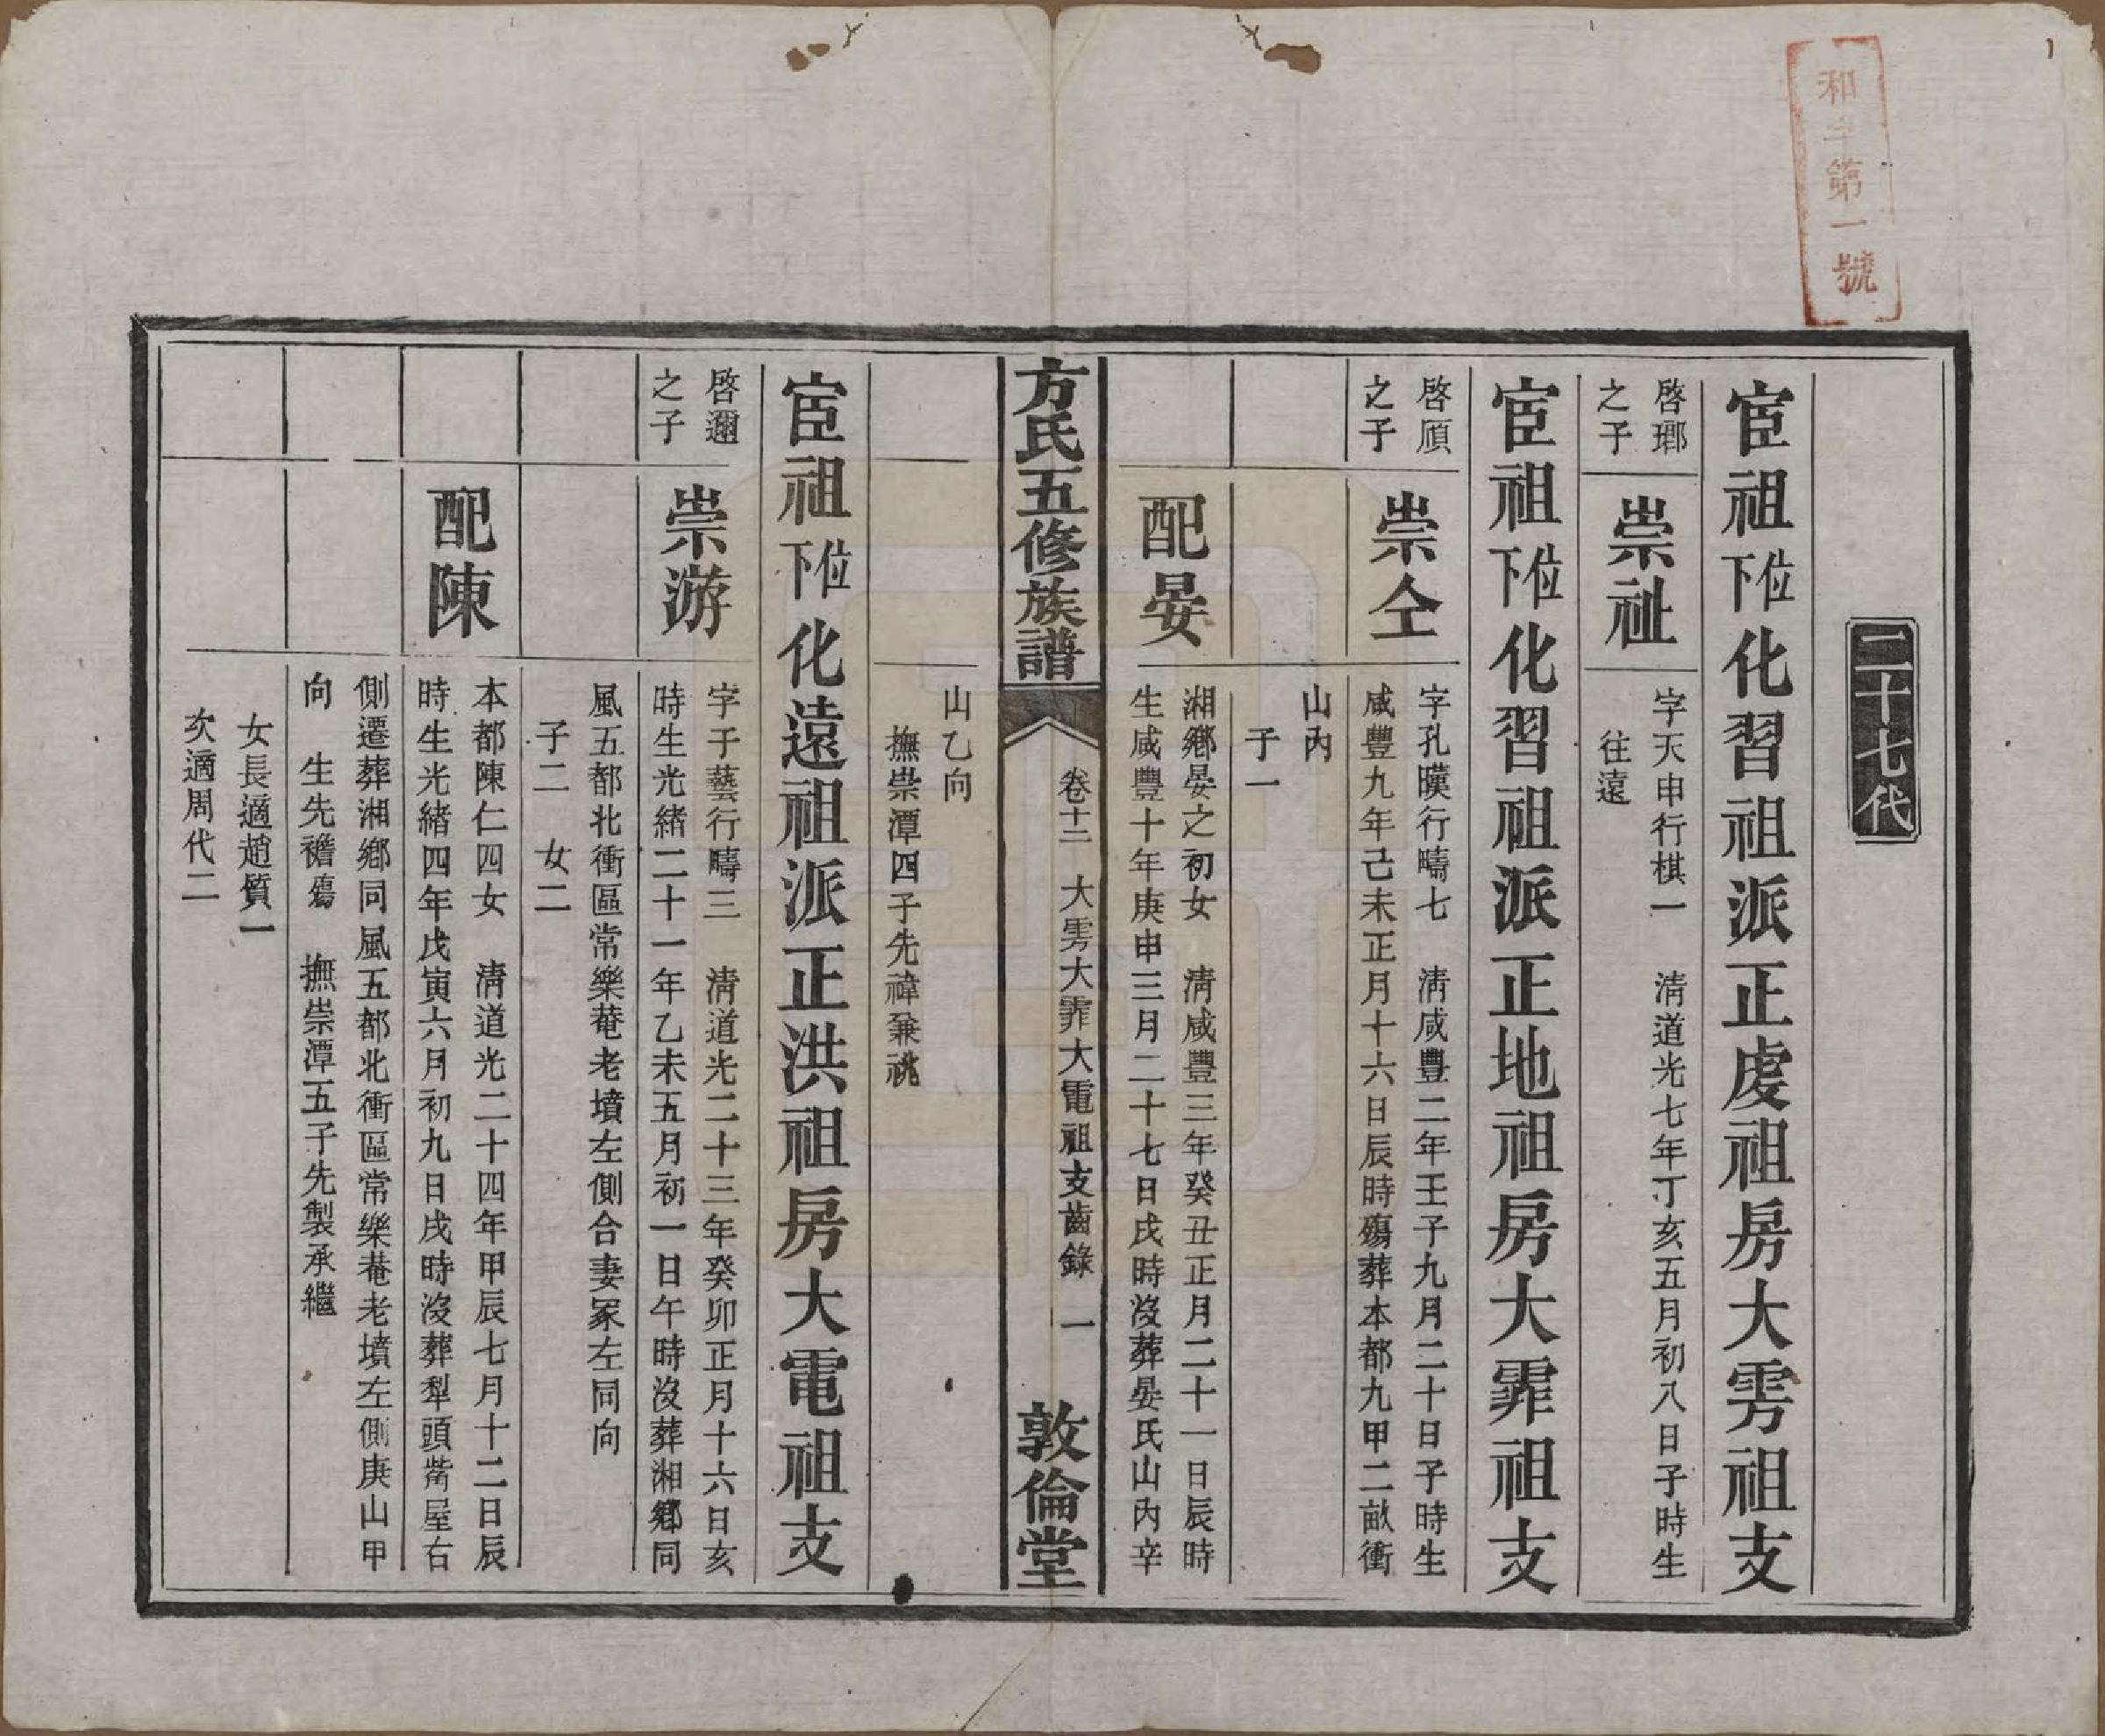 和字第一號
二十七代
宦祖位下化習祖派正虔祖房大雱祖支
啓瑘
之子
崇祉
字天申行棋一　淸道光七年丁亥五月初八日子時生
往遠
宦祖位下化習祖派正地祖房大霏祖支
啓頎
之子
崇仝
字孔暵行疇七　淸咸豐二年壬子九月二十日子時生
咸豐九年己未正月十六日辰時殤葬本都九甲二畝衝
山內
子一
配晏
湘鄕晏之初女　淸咸豐三年癸丑正月二十一日辰時
生咸豐十年庚申三月二十七日戌時沒葬晏氏山內辛
方氏五修族譜
卷十二　大雱大霏大電祖支齒錄　一
敦倫堂
山乙向
撫崇潭四子先禕兼祧
宦祖位下化遠祖派正洪祖房大電祖支
啓邇
之子
崇游
字于藝行疇三　淸道光二十三年癸卯正月十六日亥
時生光緖二十一年乙未五月初一日午時沒葬湘鄕同
風五都北衝區常樂菴老墳左側合妻冢左同向
子二　女二
配陳
本都陳仁四女　淸道光二十四年甲辰七月十二日辰
時生光緖四年戊寅六月初九日戌時沒葬犁頭觜屋右
側遷葬湘鄕同風五都北衝區常樂菴老墳左側庚山甲
向　生先襜殤　撫崇潭五子先製承繼
女長適趙質一
次適周代二